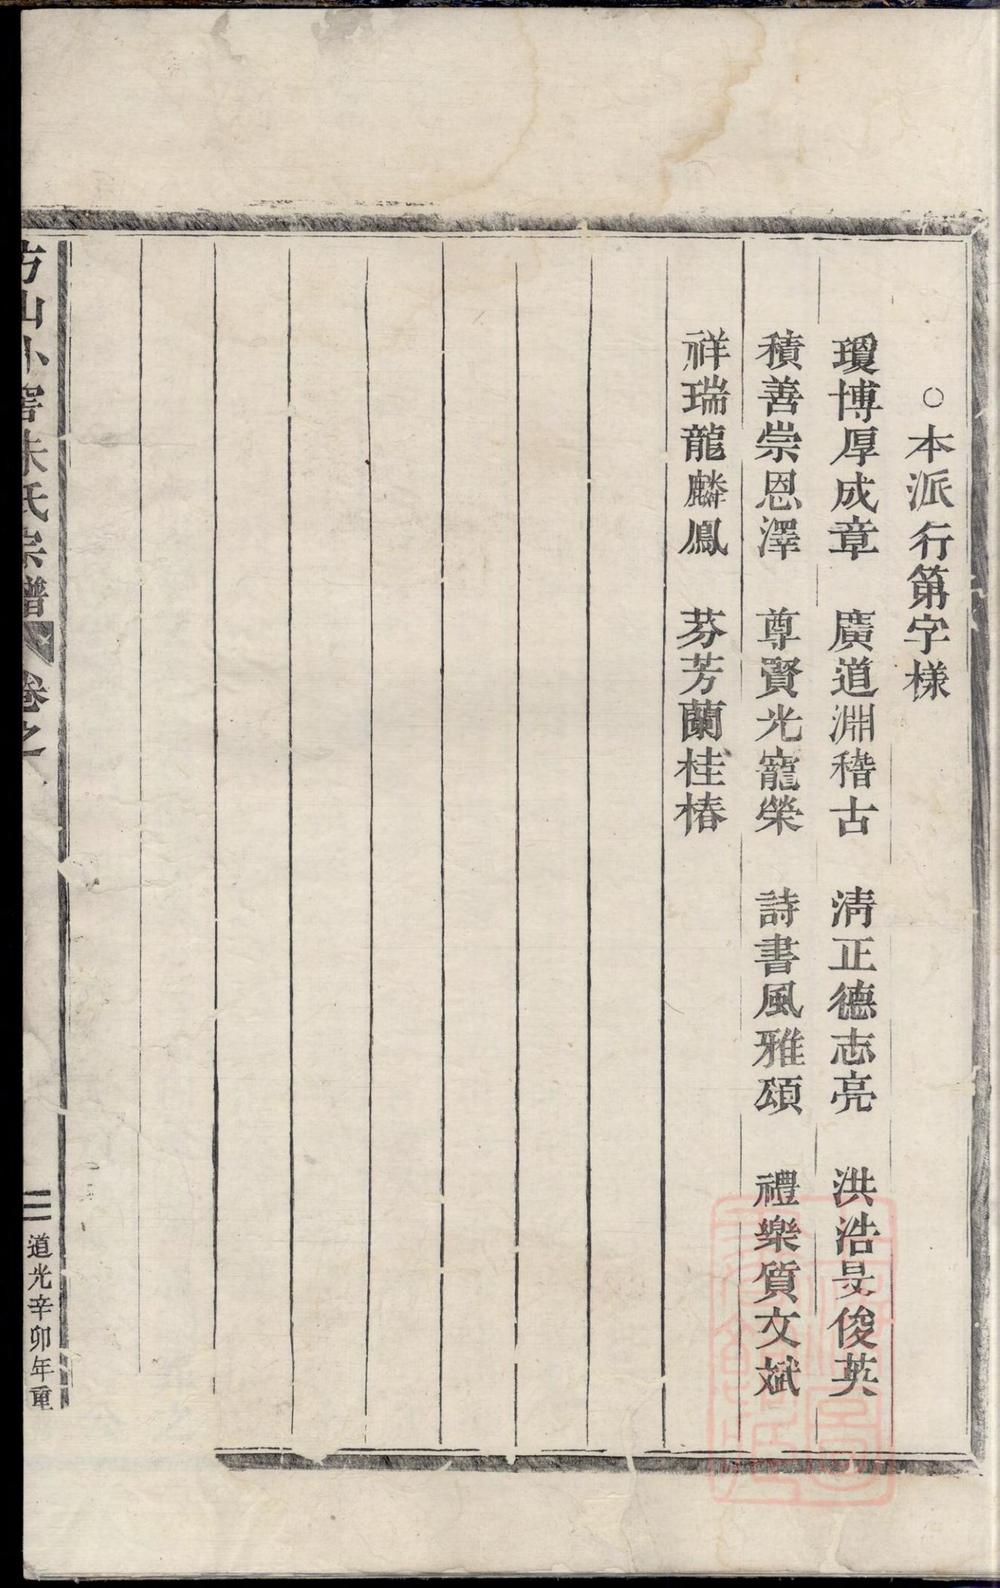 ○本派行第字樣
瓊博厚成章 廣道淵稽古 淸正德志亮 洪浩旻俊英
積善崇恩澤 尊賢光寵榮 詩書風雅頌 禮樂質文斌
祥瑞龍麟鳳 芬芳蘭桂椿
方山小窖朱氏宗譜 卷之 二 道光辛卯年重